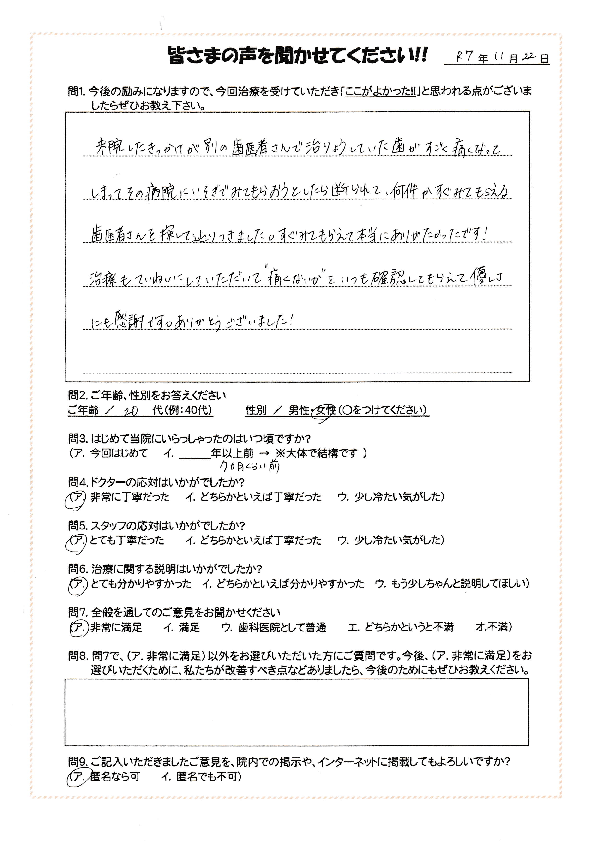 皆さまの声を聞かせてください!!
R7年11月22日
問1. 今後の励みになりますので、今回治療を受けていただき「ここがよかった!!」と思われる点がございま
したらぜひお教え下さい。
来院したきっかけが別の歯医者さんで治りょうしていた歯がすごく痛くなって
しまってその病院にいそぎでみてもらおうとしたら断られて、何件かすぐみてもらえる
歯医者さんを探して辿りつきました。すぐみてもらえて本当にありがたかったです!
治療もていねいにしていただいて"痛くないか"といつも確認してもらえて優しさ
にも感謝です。ありがとうございました!
問2. ご年齢、性別をお答えください
ご年齢 / 20 代(例:40代) 性別 / 男性・女性(○をつけてください)
問3. はじめて当院にいらっしゃったのはいつ頃ですか?
(ア. 今回はじめて イ. ＿＿＿年以上前 → ※大体で結構です )
ヶ月くらい前
問4. ドクターの応対はいかがでしたか?
(ア. 非常に丁寧だった イ. どちらかといえば丁寧だった ウ. 少し冷たい気がした)
問5. スタッフの応対はいかがでしたか?
(ア. とても丁寧だった イ. どちらかといえば丁寧だった ウ. 少し冷たい気がした)
問6. 治療に関する説明はいかがでしたか?
(ア. とても分かりやすかった イ. どちらかといえば分かりやすかった ウ. もう少しちゃんと説明してほしい)
問7. 全般を通してのご意見をお聞かせください
(ア. 非常に満足 イ. 満足 ウ. 歯科医院として普通 エ. どちらかというと不満 オ.不満)
問8. 問7で、(ア. 非常に満足)以外をお選びいただいた方にご質問です。今後、(ア. 非常に満足)をお
選びいただくために、私たちが改善すべき点などありましたら、今後のためにもぜひお教えください。
問9. ご記入いただきましたご意見を、院内での掲示や、インターネットに掲載してもよろしいですか?
(ア. 匿名なら可 イ. 匿名でも不可)